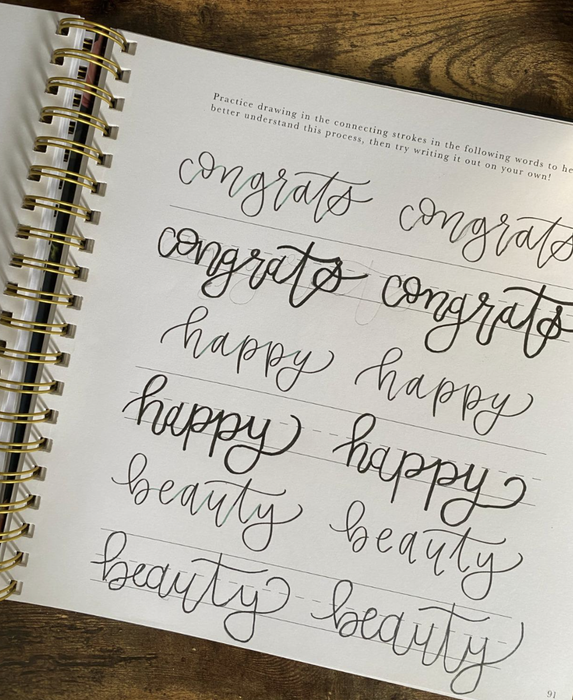 Practice drawing in the connecting strokes in the following words to he
better understand this process, then try writing it out on your own!
congrats congrats
congrats congrats
happy happy
happy happy
beauty beauty
beauty beauty
91